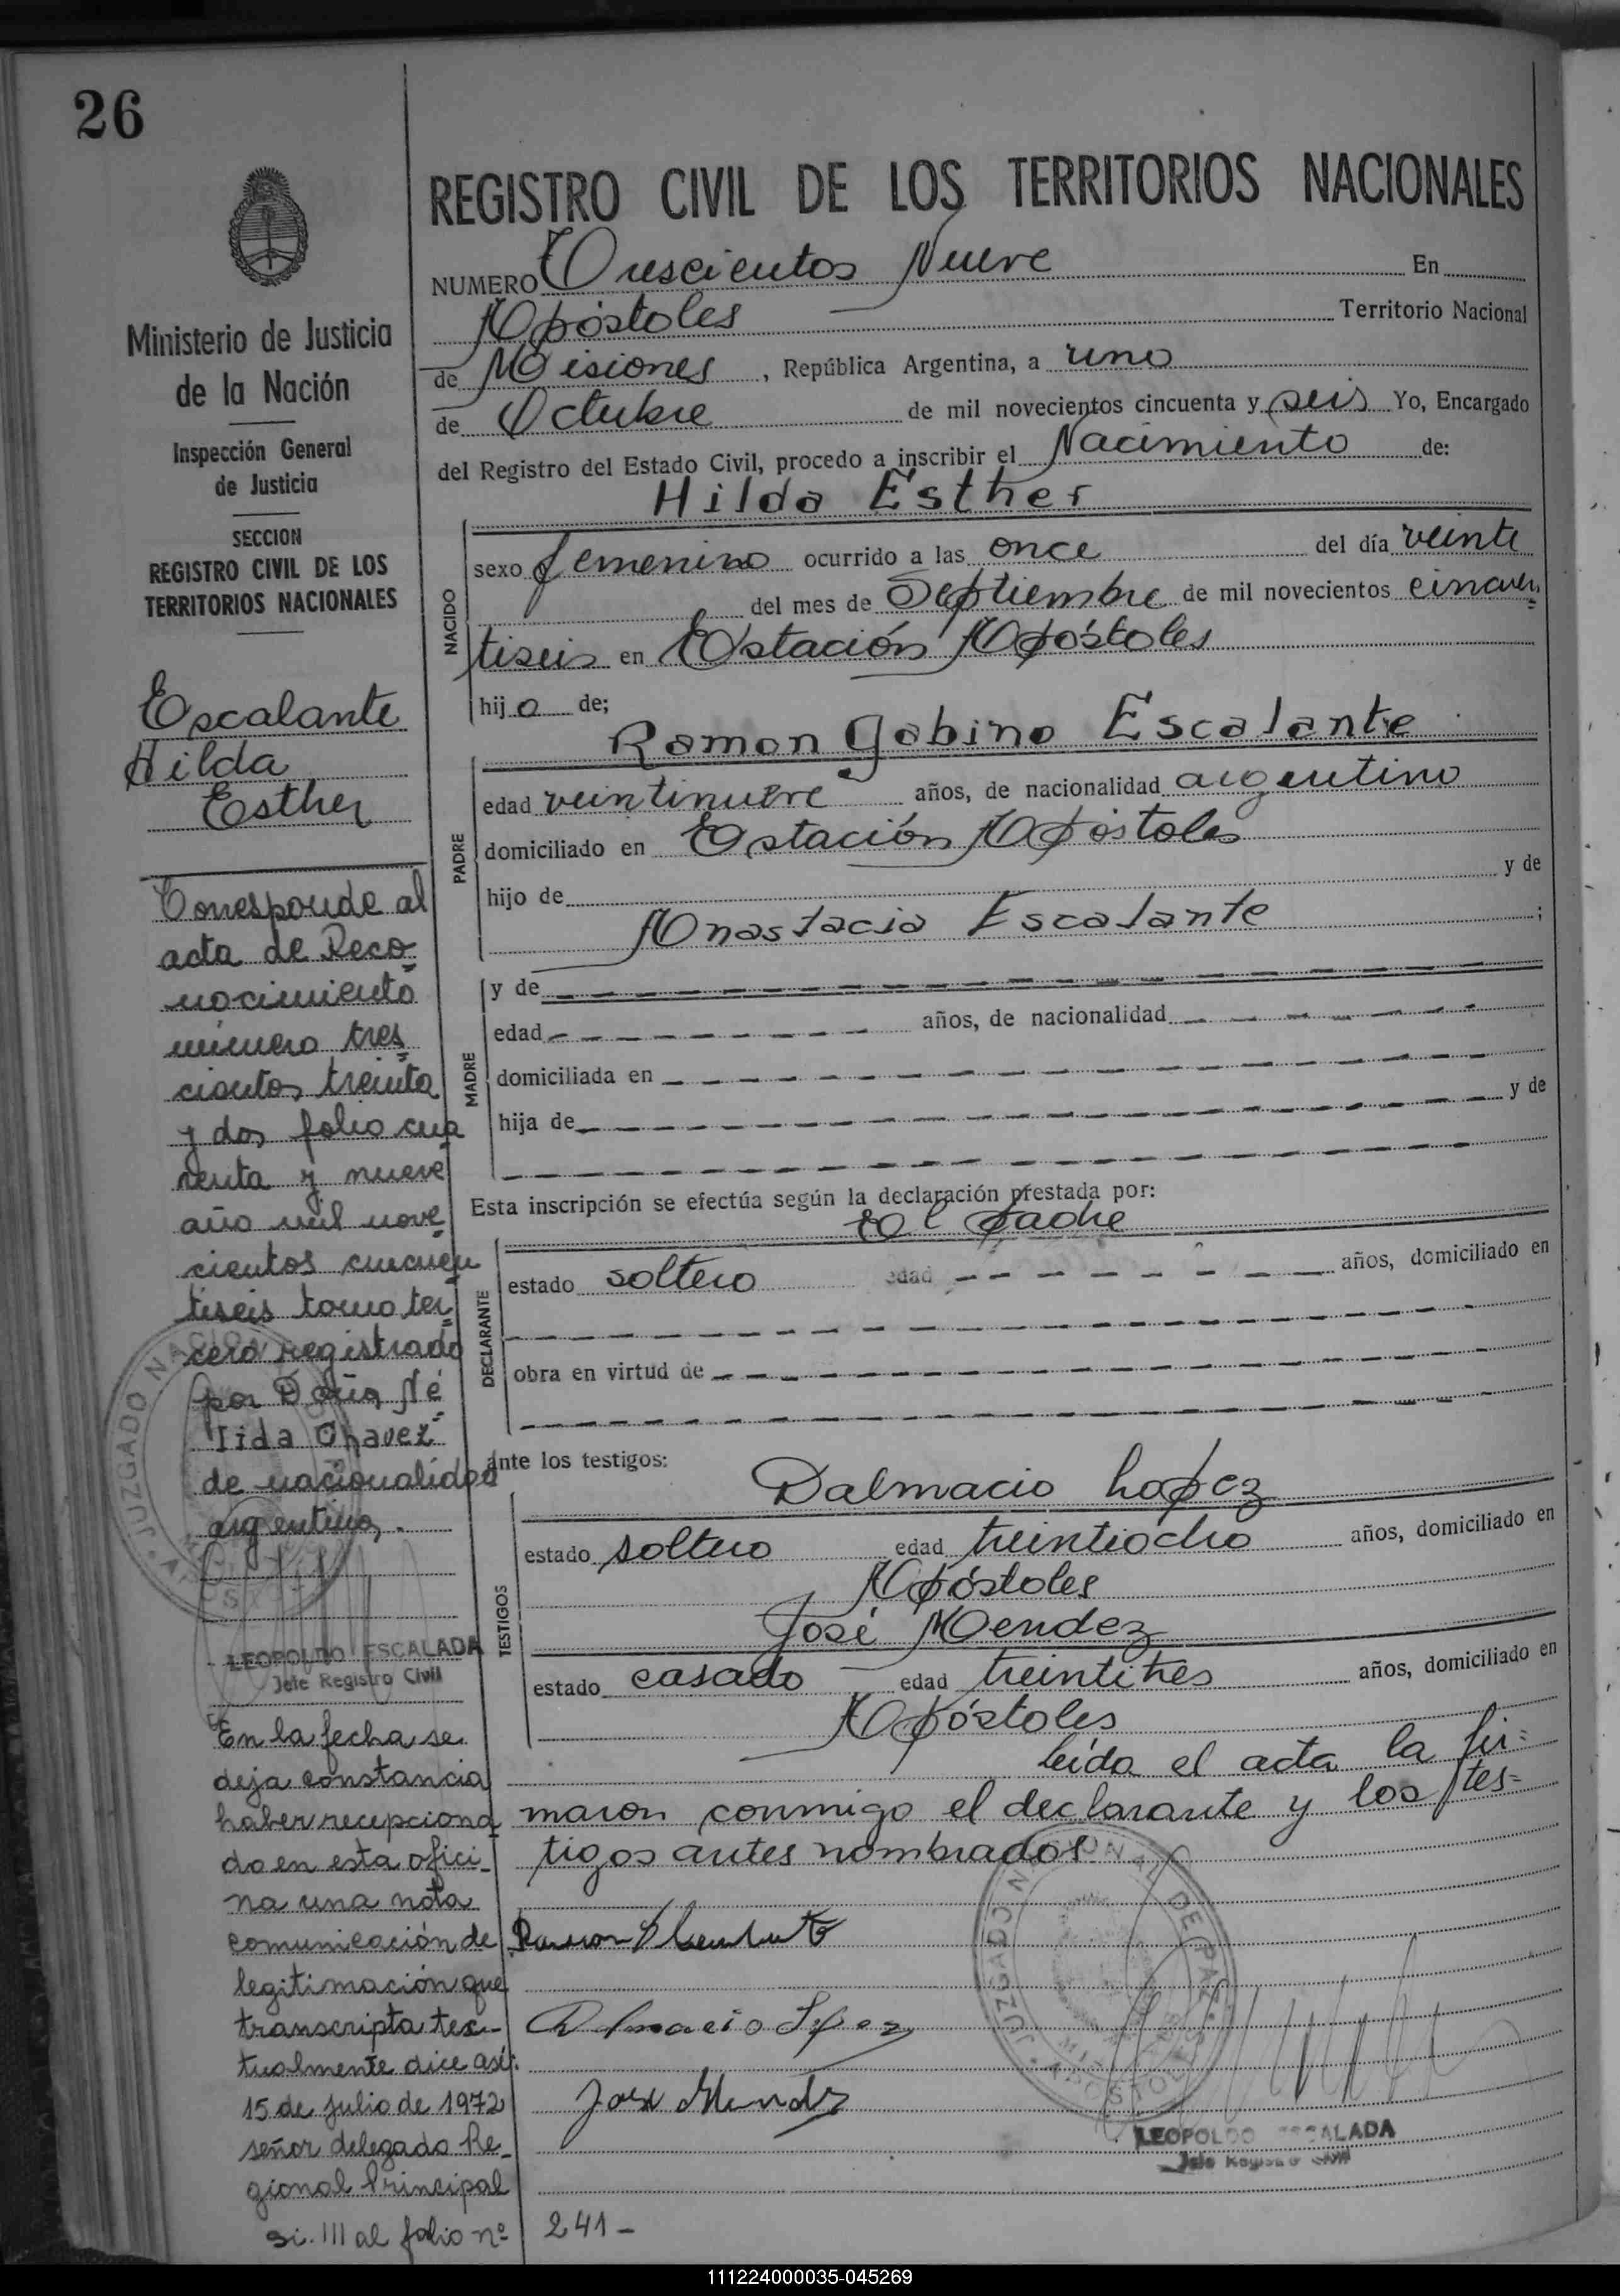 26
REGISTRO CIVIL DE LOS TERRITORIOS NACIONALES
NUMERO Trescientos Nueve En
Apóstoles Territorio Nacional
de Misiones, República Argentina, a uno
de Octubre de mil novecientos cincuenta y seis Yo, Encargado
del Registro del Estado Civil, procedo a inscribir el Nacimiento de:
Hilda Esther
NACIDO
sexo femenino ocurrido a las once del día veinte
del mes de Septiembre de mil novecientos cincuen
tiseis en Estación Apóstoles
hija de;
Ramon Gabino Escalante
PADRE
edad veintinueve años, de nacionalidad argentino
domiciliado en Estación Apóstoles
hijo de y de
Anastacia Escalante ;
MADRE
y de
edad años, de nacionalidad
domiciliada en
hija de y de
Esta inscripción se efectúa según la declaración prestada por:
El padre
DECLARANTE
estado soltero edad años, domiciliado en
obra en virtud de
ante los testigos:
TESTIGOS
Dalmacio Lopez
estado soltero edad treintiocho años, domiciliado en
Apóstoles
José Mendez
estado casado edad treintitres años, domiciliado en
Apóstoles
leída el acta la fir=
maron conmigo el declarante y los tes=
tigos antes nombrados
Dalmacio Lopez
José Mendez
JUZGADO NACIONAL DE PAZ
APOSTOLES
LEOPOLDO ESCALADA
Jefe Registro Civil
241-
Ministerio de Justicia
de la Nación
Inspección General
de Justicia
SECCION
REGISTRO CIVIL DE LOS
TERRITORIOS NACIONALES
Escalante
Hilda
Esther
Corresponde al
acta de Reco
nocimiento
número tres
cientos treinta
y dos folio cua
renta y nueve
año mil nove
cientos cincuen
tiseis tomo ter
cero registrado
por Doña Né
lida Chavez
de nacionalidad
argentina.
LEOPOLDO ESCALADA
Jefe Registro Civil
En la fecha se
deja constancia
haber recepciona
do en esta ofici-
na una nota
comunicación de
legitimación que
transcripta tex-
tualmente dice así:
15 de julio de 1972
señor delegado Re-
gional Principal
III al folio nº
111224000035-045269